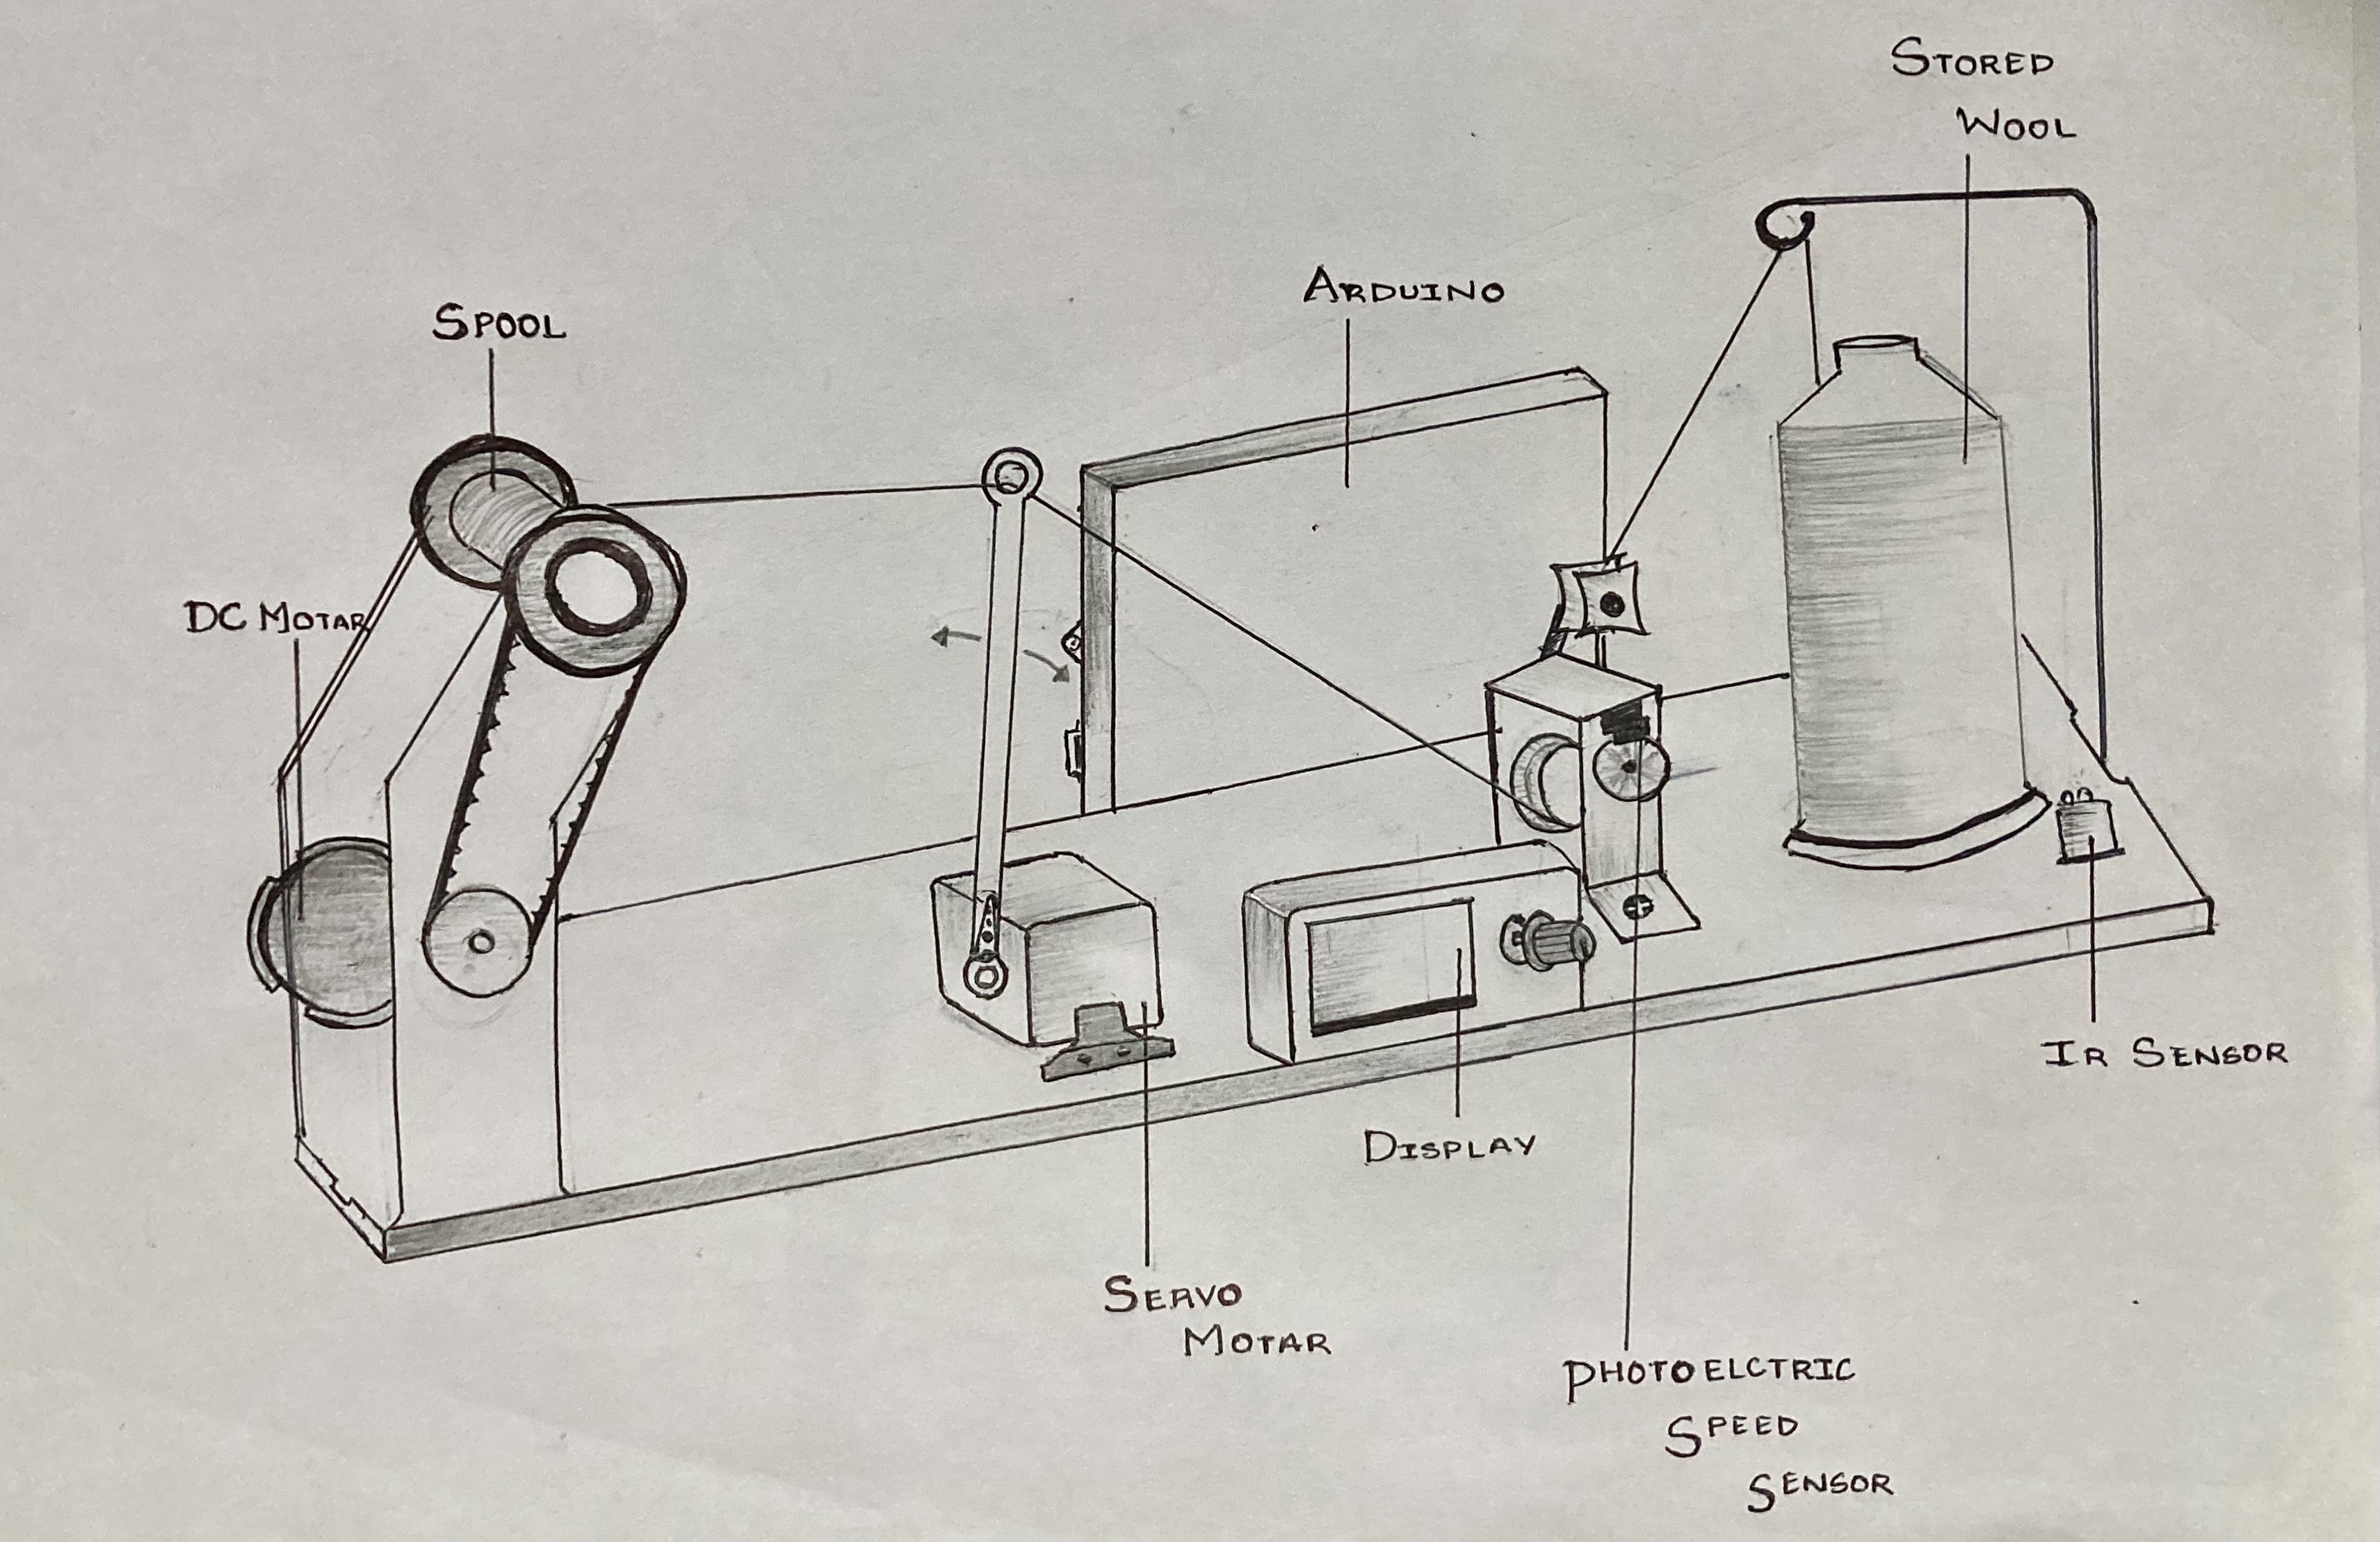 STORED
WOOL
ARDUINO
SPOOL
DC MOTAR
IR SENSOR
DISPLAY
SERVO
MOTAR
PHOTOELCTRIC
SPEED
SENSOR